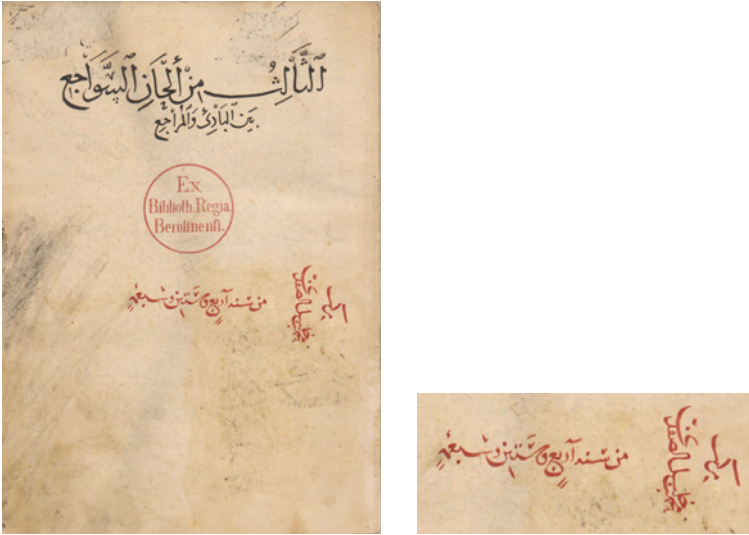 الثَّالِثُ مِنْ أَلْحَانِ السَّوَاجِعِ
بَيْنَ البَادِئِ وَالمُرَاجِعِ
Ex
Biblioth. Regia
Berolinenſi.
من سنه أربع وستين وسبعمئه
من سنه أربع وستين وسبعمئه